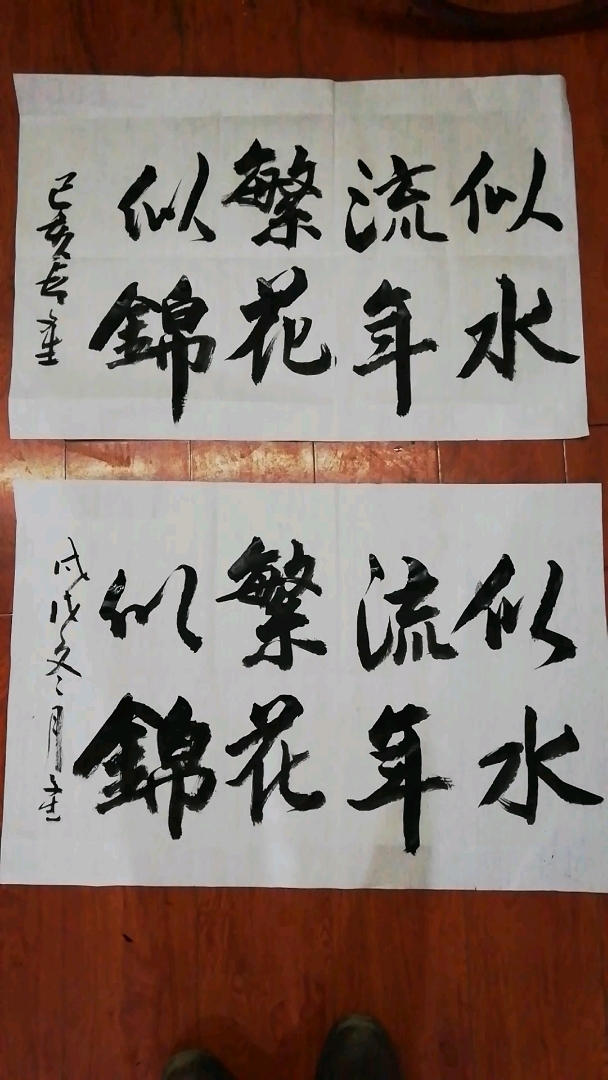 似水
流年
繁花
似錦
己亥春
似水
流年
繁花
似錦
戊戌冬月